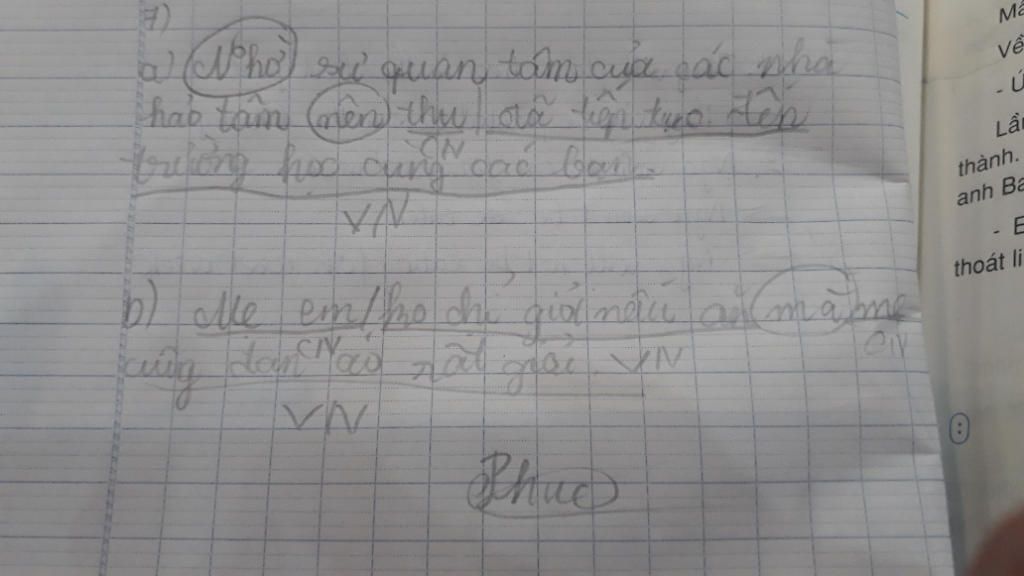 7)
a) Nhờ sự quan tâm của các nhà
hảo tâm nên thu đã tiếp tục đến
CN
trường học cùng các bạn.
VN
b) Mẹ em / ko chỉ giỏi nấu ăn mà mẹ
CN
cũng đan áo rất giỏi. VN
CN
VN
Phuc
Về
- Ú
thành.
anh Ba
- E
thoát li
: